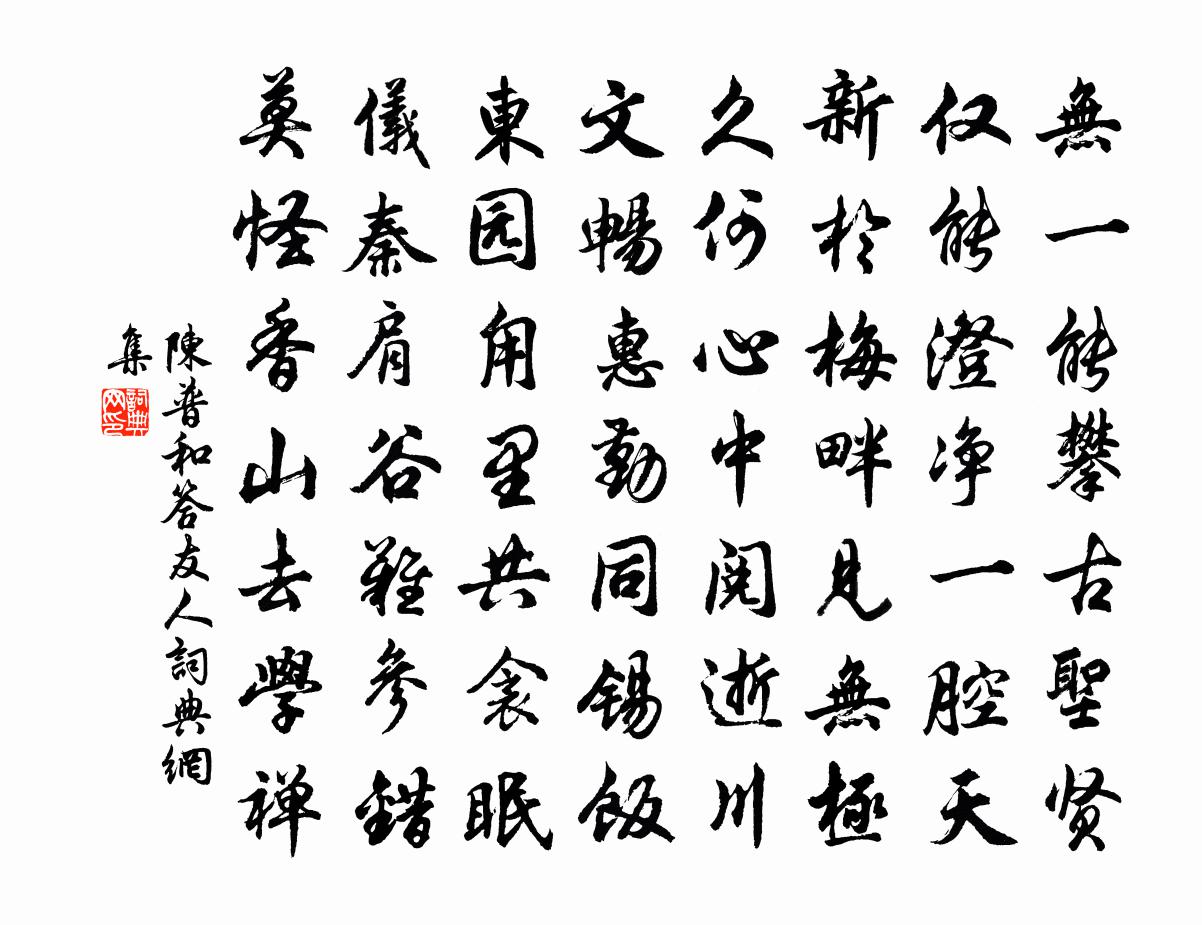 無一能攀古聖贤
仅能澄净一腔天
新於梅畔見無極
久向心中閱逝川
文暢惠勤同锡飯
東园用里共衾眠
儀秦肩谷難參錯
莫怪香山去學禅
陳普和答友人詞典網
集
詞典网印